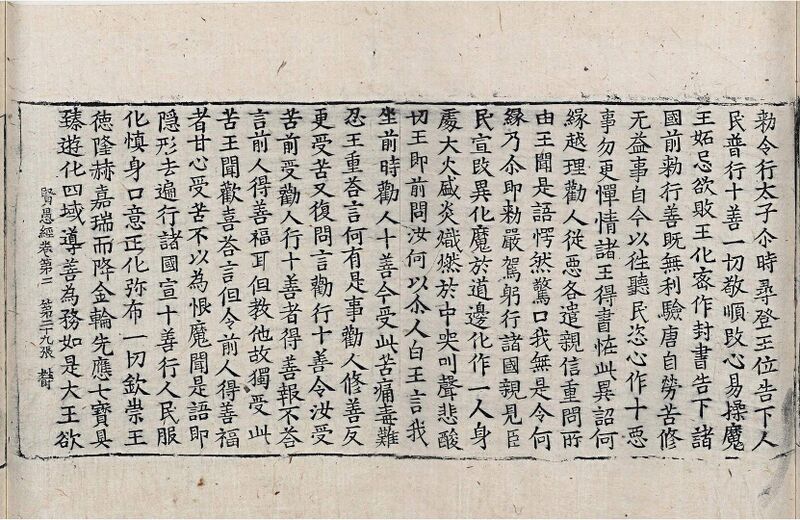 勑令行太子尒時尋登王位告下人
民普行十善一切敬順改心易操魔
王妬忌欲敗王化宻作封書告下諸
國前勑行善既無利驗唐自勞苦修
无益事自今以徃聽民恣心作十惡
事勿更憚情諸王得書恠此異詔何
緣越理勸人從惡各遣親信重問所
由王聞是語愕然驚口我無是令何
緣乃尒即勑嚴駕躬行諸國親見臣
民宣改異化魔於道邊化作一人身
處大火盛炎熾燃於中央叫聲悲酸
切王即前問汝何以尒人白王言我
坐前時勸人十善今受此苦痛毒難
忍王重荅言何有是事勸人修善反
更受苦又復問言勸行十善令汝受
苦前受勸人行十善者得善報不荅
言前人得善福耳但教他故獨受此
苦王聞歡喜荅言但令前人得善福
者甘心受苦不以為恨魔聞是語即
隱形去遍行諸國宣十善行人民服
化慎身口意正化弥布一切欽崇王
德隆赫嘉瑞而降金輪先應七寶具
臻遊化四域導善為務如是大王欲
賢愚經卷第二 第二十九張